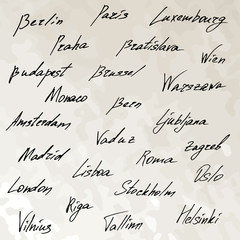 Berlin Paris Luxembourg
Praha Bratislava Wien
Budapest Brussel Warszawa
Monaco Bern
Amsterdam Ljubljana
Vaduz Zagreb
Madrid Roma
Lisboa Oslo
London Stockholm
Riga Helsinki
Vilnius Tallinn